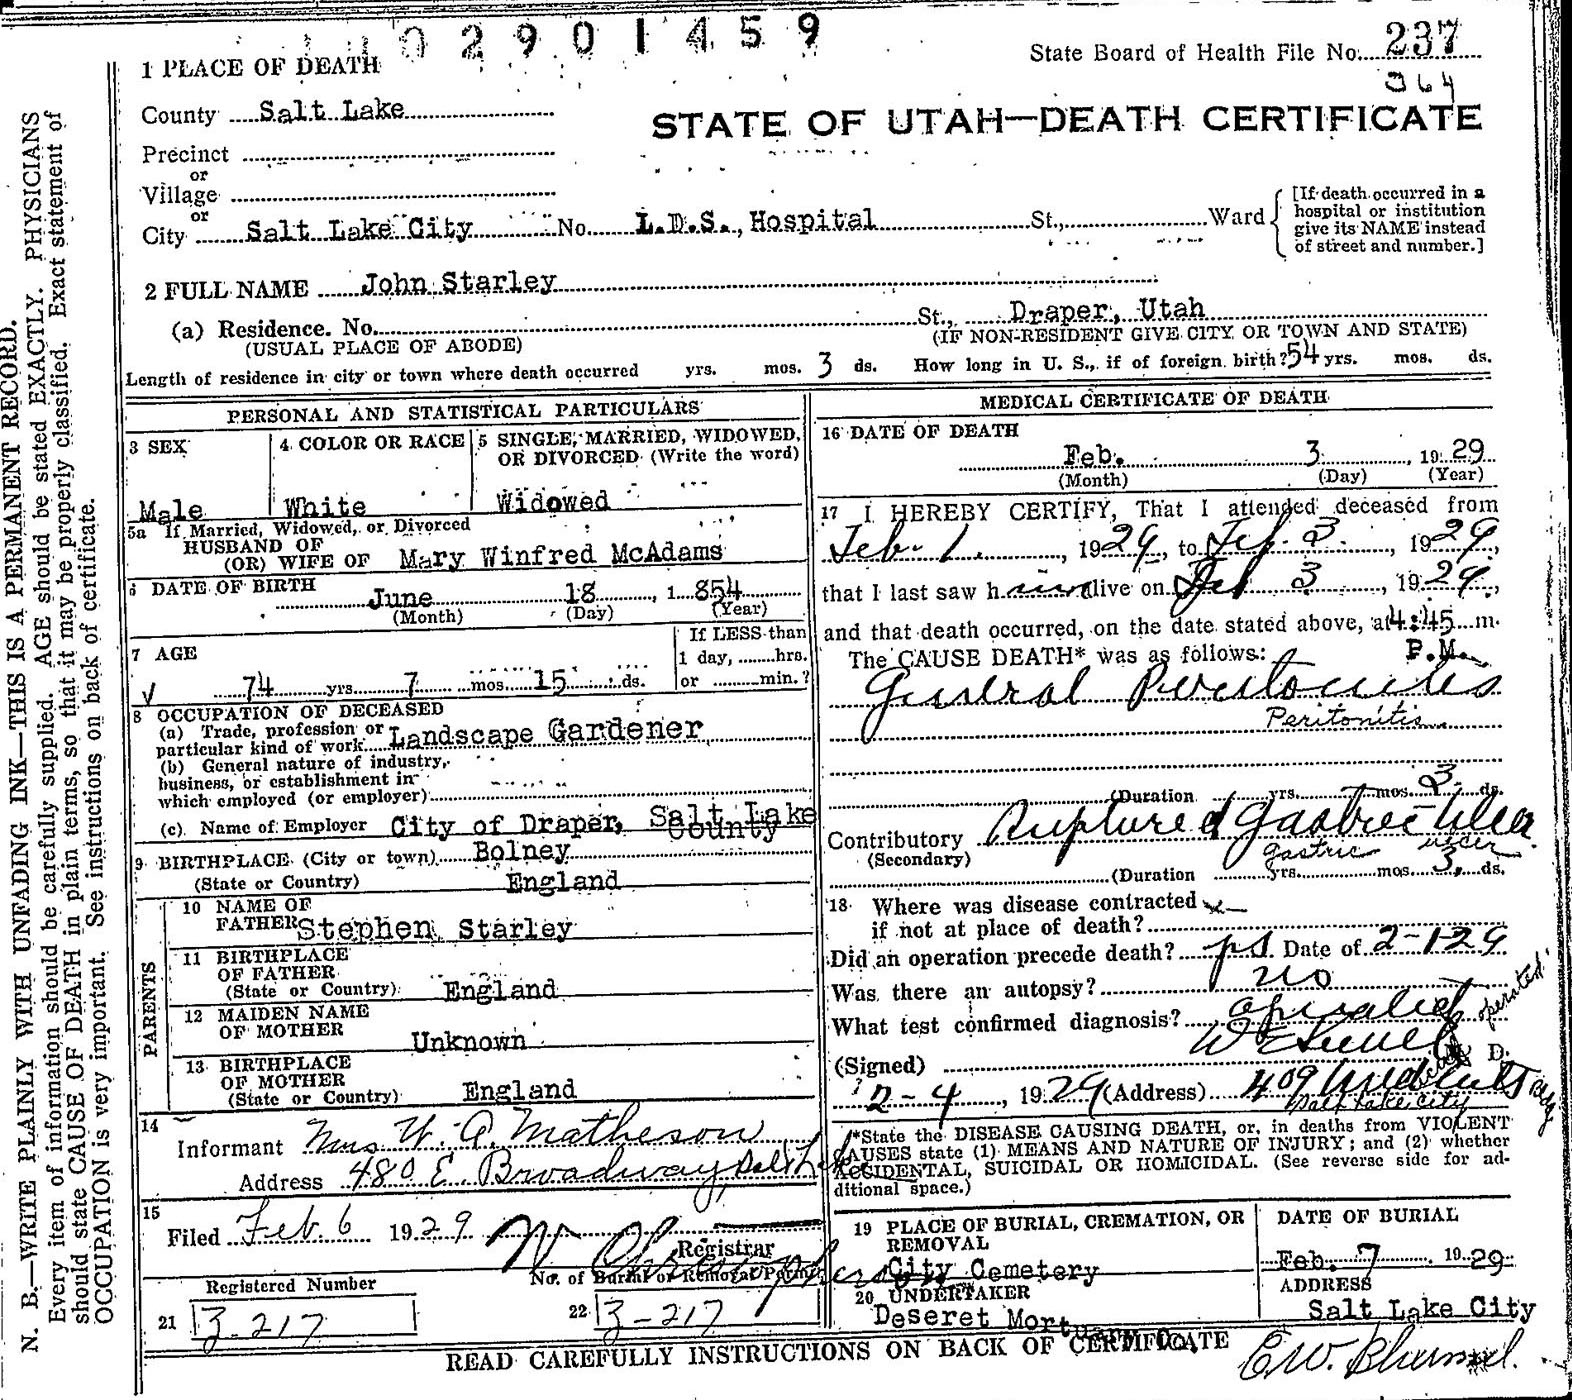 02901459
State Board of Health File No. 237
364
1 PLACE OF DEATH
County Salt Lake
STATE OF UTAH—DEATH CERTIFICATE
Precinct
or
Village
or
City Salt Lake City No. L.D.S., Hospital St., Ward
[If death occurred in a
hospital or institution
give its NAME instead
of street and number.]
2 FULL NAME John Starley
(a) Residence. No. St., Draper, Utah
(USUAL PLACE OF ABODE) (IF NON-RESIDENT GIVE CITY OR TOWN AND STATE)
Length of residence in city or town where death occurred yrs. mos. 3 ds. How long in U. S., if of foreign birth? 54 yrs. mos. ds.
PERSONAL AND STATISTICAL PARTICULARS
3 SEX
Male
4 COLOR OR RACE
White
5 SINGLE, MARRIED, WIDOWED,
OR DIVORCED (Write the word)
Widowed
5a If Married, Widowed, or Divorced
HUSBAND OF
(OR) WIFE OF Mary Winfred McAdams
6 DATE OF BIRTH
June 18, 1854
(Month) (Day) (Year)
7 AGE
74 yrs 7 mos 15 ds.
If LESS than
1 day, hrs.
or min.?
8 OCCUPATION OF DECEASED
(a) Trade, profession or
particular kind of work Landscape Gardener
(b) General nature of industry,
business, or establishment in
which employed (or employer)
(c) Name of Employer City of Draper, Salt Lake
County
9 BIRTHPLACE (City or town) Bolney
(State or Country) England
PARENTS
10 NAME OF
FATHER Stephen Starley
11 BIRTHPLACE
OF FATHER
(State or Country) England
12 MAIDEN NAME
OF MOTHER Unknown
13 BIRTHPLACE
OF MOTHER
(State or Country) England
14
Informant Mrs W. A. Matheson
Address 480 E Broadway, Salt Lake
15
Filed Feb. 6 1929
Registrar
Registered Number
21 3-217
No. of Burial or Removal Permit
22 3-217
MEDICAL CERTIFICATE OF DEATH
16 DATE OF DEATH
Feb. 3, 1929
(Month) (Day) (Year)
17 I HEREBY CERTIFY, That I attended deceased from
Feb. 1, 1929, to Feb. 3, 1929,
that I last saw him alive on Feb 3, 1929,
and that death occurred, on the date stated above, at 4:45 m.
P.M.
The CAUSE DEATH* was as follows:
General Peritonitis
Peritonitis
(Duration yrs. mos. 3 ds.
Contributory Ruptured Gastric Ulcer
(Secondary) gastric ulcer
(Duration yrs. mos. 3 ds.
18 Where was disease contracted
if not at place of death?
Did an operation precede death? yes Date of 2-1-29
Was there an autopsy? no
What test confirmed diagnosis? operated
operated
(Signed) M. D.
2-4, 1929 (Address) 409
Salt Lake City
*State the DISEASE CAUSING DEATH, or, in deaths from VIOLENT
CAUSES state (1) MEANS AND NATURE OF INJURY; and (2) whether
ACCIDENTAL, SUICIDAL OR HOMICIDAL. (See reverse side for ad-
ditional space.)
19 PLACE OF BURIAL, CREMATION, OR
REMOVAL
City Cemetery
DATE OF BURIAL
Feb. 7 1929
20 UNDERTAKER
Deseret Mortuary Co.
ADDRESS
Salt Lake City
READ CAREFULLY INSTRUCTIONS ON BACK OF CERTIFICATE
N. B.—WRITE PLAINLY WITH UNFADING INK—THIS IS A PERMANENT RECORD.
Every item of information should be carefully supplied. AGE should be stated EXACTLY. PHYSICIANS
should state CAUSE OF DEATH in plain terms, so that it may be properly classified. Exact statement of
OCCUPATION is very important. See instructions on back of certificate.